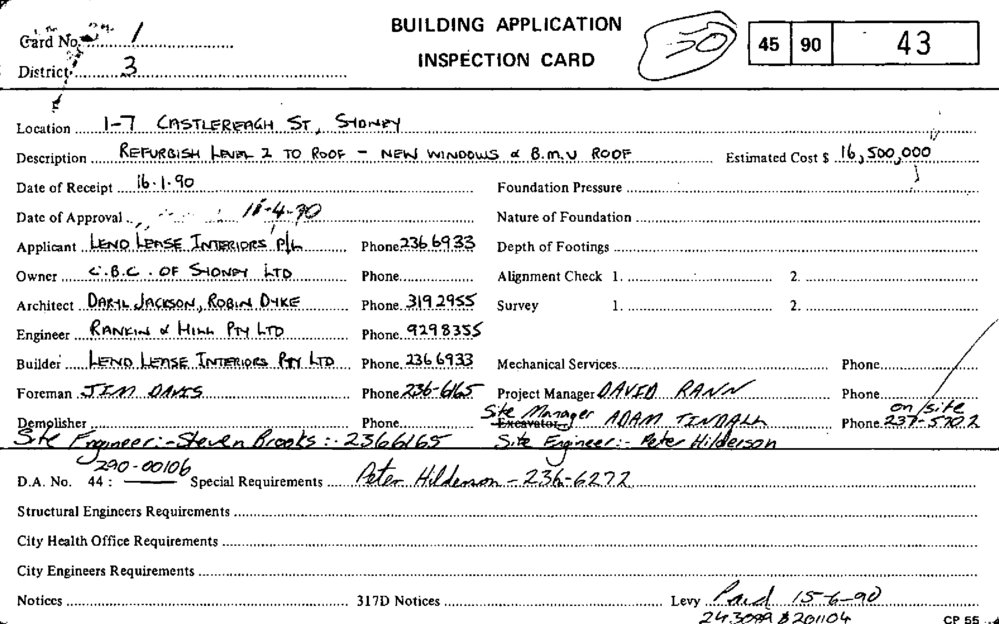 Card No. 1
District 3
BUILDING APPLICATION
INSPECTION CARD
30
45 90 43
Location 1-7 CASTLEREAGH ST, SYDNEY
Description REFURBISH LEVEL 2 TO ROOF - NEW WINDOWS & B.M.U ROOF Estimated Cost $ 16,500,000
Date of Receipt 16.1.90 Foundation Pressure
Date of Approval 11-4-90 Nature of Foundation
Applicant LEND LEASE INTERIORS P/L Phone 236 6933 Depth of Footings
Owner C.B.C. OF SYDNEY LTD Phone Alignment Check 1. 2.
Architect DARYL JACKSON, ROBIN DYKE Phone 319 2955 Survey 1. 2.
Engineer RANKIN & HILL PTY LTD Phone 9298355
Builder LEND LEASE INTERIORS PTY LTD Phone 236 6933 Mechanical Services Phone
Foreman JIM DAVIS Phone 236-6165 Project Manager DAVID RANN Phone
on site
Demolisher Phone Site Manager Excavator ADAM TINDALL Phone 237-5702
Site Engineer:- Steven Brooks:- 2366165 Site Engineer:- Peter Hilderson
D.A. No. 44: 290-00106 Special Requirements Peter Hilderson - 236-6272
Structural Engineers Requirements
City Health Office Requirements
City Engineers Requirements
Notices 317D Notices Levy Paid 15-6-90
243099 $201104
CP 55